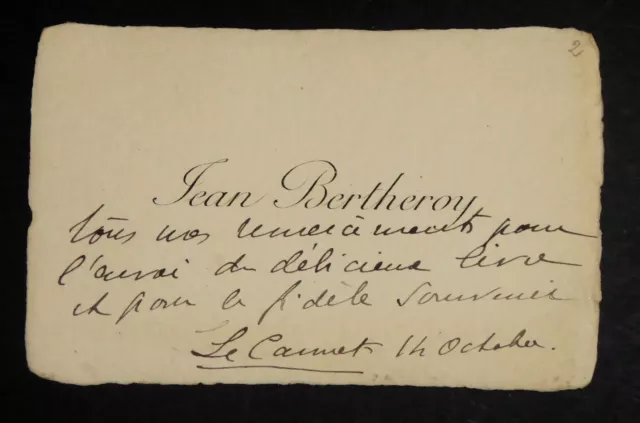 2
Jean Bertheroy
tous nos remerciements pour
l'envoi du délicieux livre
et pour le fidèle souvenir
Le Cannet 14 Octobre.